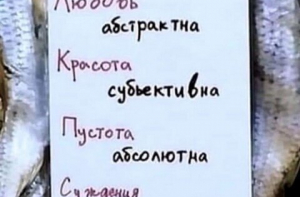 Любовь
абстрактна
Красота
субъективна
Пустота
абсолютна
Суждения